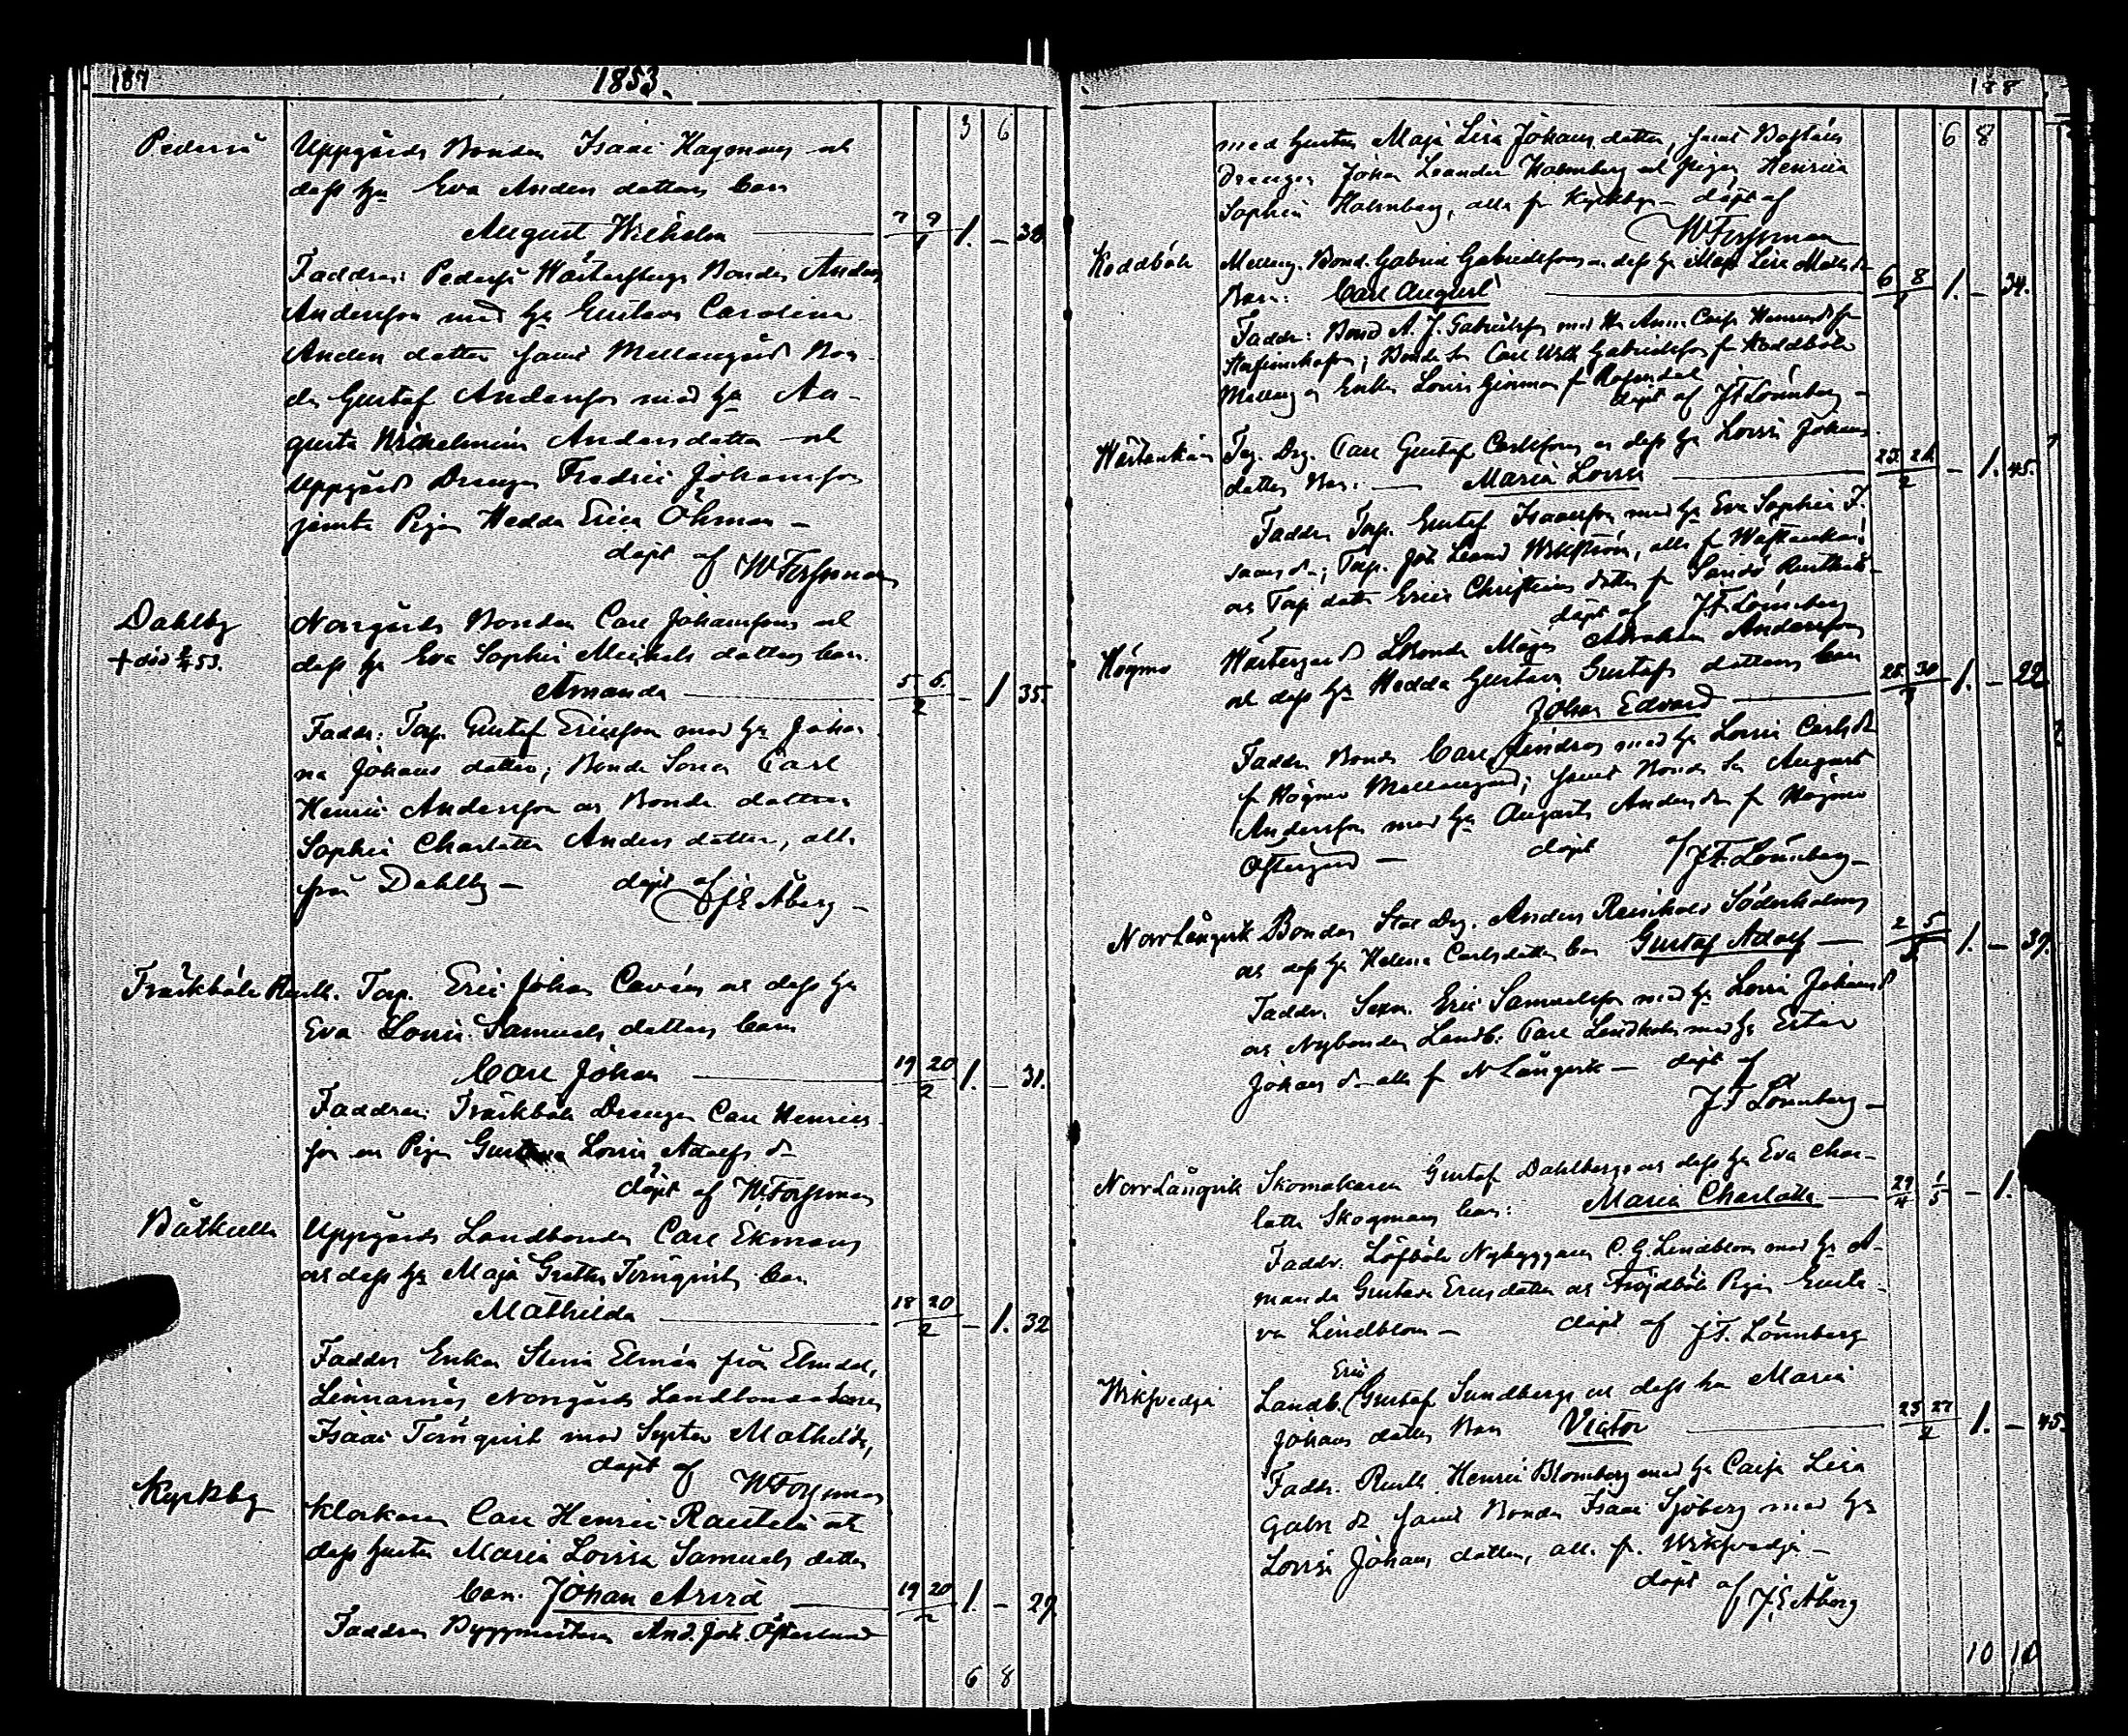 187 1853.
3 6
Pedersö Uppgårds Bonden Isaac Hagmans och
dess hu Eva Anders dotters barn
August Wilhelm 7 9 1 1. – 38
Faddrar: Pedersö Westerstugu Bonden Anders
Andersson med hu Gustava Carolina
Anders dotter samt Mellangårds Bon-
den Gustaf Andersson med hu Au-
gusta Wilhelmina Andersdotter och
Uppgårds Drengen Fredric Johansson
jemte Pigan Hedda Erica Öhman –
döpt af W Forssman
Dahlby Norrgårds Bonden Carl Johanssons och
+ död 53. dess hu Eva Sophia Meikels dotters barn
Amanda 5 6 2 – 1 35.
Faddr: Torp. Gustaf Ericsson med hu Johan
na Johans dotter; Bonde Sonen Carl
Henric Andersson och Bonde dottren
Sophia Charlotta Anders dotter, alla
från Dahlby – döpt af
J E Åberg –
Träskböle Rusth. Torp. Eric Johan Cavéns och dess hu
Eva Lovisa Samuels dotters barn
Carl Johan 19 20 2 1. – 31.
Faddrar: Träskböle Drengen Carl Henrics
son och Pigan Gustava Lovisa Adolfs dr
döpt af W. Forssman
Båtkulla Uppgårds Landbonden Carl Ekmans
och dess hu Maja Gretha Törnqvists barn
Mathilda 18 20 2 – 1. 32
Faddrar Enkan Stina Elmén från Elmdal,
Lennarnäs Norrgårds Landbondesonen
Isaac Törnqvist med Syster Mathilda,
döpt af
W Forssman
Kyrkby Klockaren Carl Henric Rautell och
dess hustru Maria Lovisa Samuels dotters
barn. Johan Arvid 19 20 2 1. – 29
Faddrar Byggmästaren And. Joh. Österlund
6 8
188
6 8
med hustru Maja Lisa Johans dotter, samt
Drengen Johan Leander Holmberg och Pigan Henrica
Sophia Holmberg, alla fr Kyrkby – döpt af
W Forssman
Koddböle Mellang. Bond. Gabriel Gabrielssons o. dess hu Maja Lisa Matsdr
Barn: Carl August 6 8 1 1. – 34.
Faddr: Bond A. J. Gabrielsson med Hu Anna Caisa Henricsdr fr
Bonde Son Carl Wilh Gabrielsson fr Koddböle
Mellang o Enkan Lovisa
döpt af J F Lönnberg –
Westankärr Torp. Drg. Carl Gustaf Carlssons o dess hu Lovisa Johans
dotters Barn. – Maria Lovisa 23 24 2 – 1. 45.
Faddr. Torp. Gustaf Isaacsson med hu Eva Sophia I-
sacs dr; Torp. Joh. Leand Wikström, alla fr Westankärr
och Torp dottr Erica Christina dotter fr Sandö Rusthåll
döpt af J F Lönnberg
Högmo Westergårds Lbonde Abraham Anderssons
och dess hu Hedda Gustava Gustafs dotters barn
Johan Edvard 28 30 1 1. – 22
Faddr. Bonde Carl Lindroos med hu Lovisa Carlsdr
fr Högmo Mellangård; samt Bonde Son August
Andersson med hu Augusta Andersdr fr Högmo
Östergård – döpt af J F. Lönnberg –
Norr Långvik Bondes Drg. Anders Reinhold Söderholms
och dess hu Helena Carlsdotters barn Gustaf Adolf – 2 5 1. – 39.
Faddr. Eric Samuelsson med hu Lovisa Johansdr
och Nybondas Landb: Carl Lindholm med hu Ester
Johans dr – alla fr N Långvik – döpt af
J F Lönnberg –
Norr Långvik Skomakaren Gustaf Dahlbergs och dess hu Eva Char-
lotta Skogmans barn: Maria Charlotta – 29 4 1 5 – 1.
Faddr. Löfböle Nybyggaren C. G. Lindblom med hu A-
manda Gustava Ericsdotter och Fröjdböle Pigan Gusta-
va Lindblom – döpt af J F. Lönnberg
Wiksvedja Landb. Eric Gustaf Sundbergs och dess hu Maria
Johans dotters Barn Victor 23 27 2 1. – 45.
Faddr. Rusth. Henric Blomberg med hu Caisa Lisa
Gabr dr samt Bonden Isaac Sjöberg med hu
Lovisa Johans dotter, alla fr. Wiksvedja –
döpt af J. E Åberg
10 10